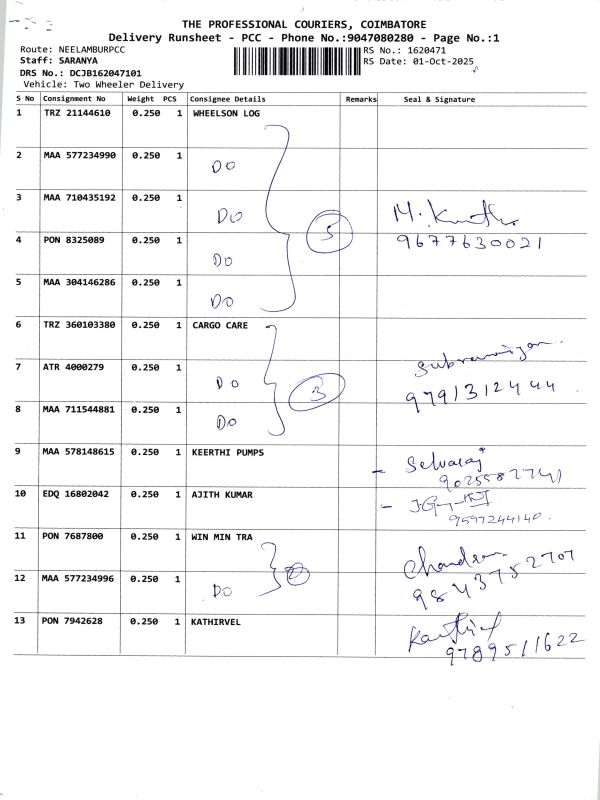 THE PROFESSIONAL COURIERS, COIMBATORE
Delivery Runsheet - PCC - Phone No.:9047080280 - Page No.:1
Route: NEELAMBURPCC RS No.: 1620471
Staff: SARANYA RS Date: 01-Oct-2025
DRS No.: DCJB162047101
Vehicle: Two Wheeler Delivery
S No Consignment No Weight PCS Consignee Details Remarks Seal & Signature
1 TRZ 21144610 0.250 1 WHEELSON LOG
2 MAA 577234990 0.250 1 DO
3 MAA 710435192 0.250 1 DO 5 M.
4 PON 8325089 0.250 1 DO 9677630021
5 MAA 304146286 0.250 1 DO
6 TRZ 360103380 0.250 1 CARGO CARE
7 ATR 4000279 0.250 1 DO 3 9791312444
8 MAA 711544881 0.250 1 DO
9 MAA 578148615 0.250 1 KEERTHI PUMPS - Selvaraj
10 EDQ 16802042 0.250 1 AJITH KUMAR - 9597244140.
11 PON 7687800 0.250 1 WIN MIN TRA 2
12 MAA 577234996 0.250 1 DO 9843752707
13 PON 7942628 0.250 1 KATHIRVEL
9789511622